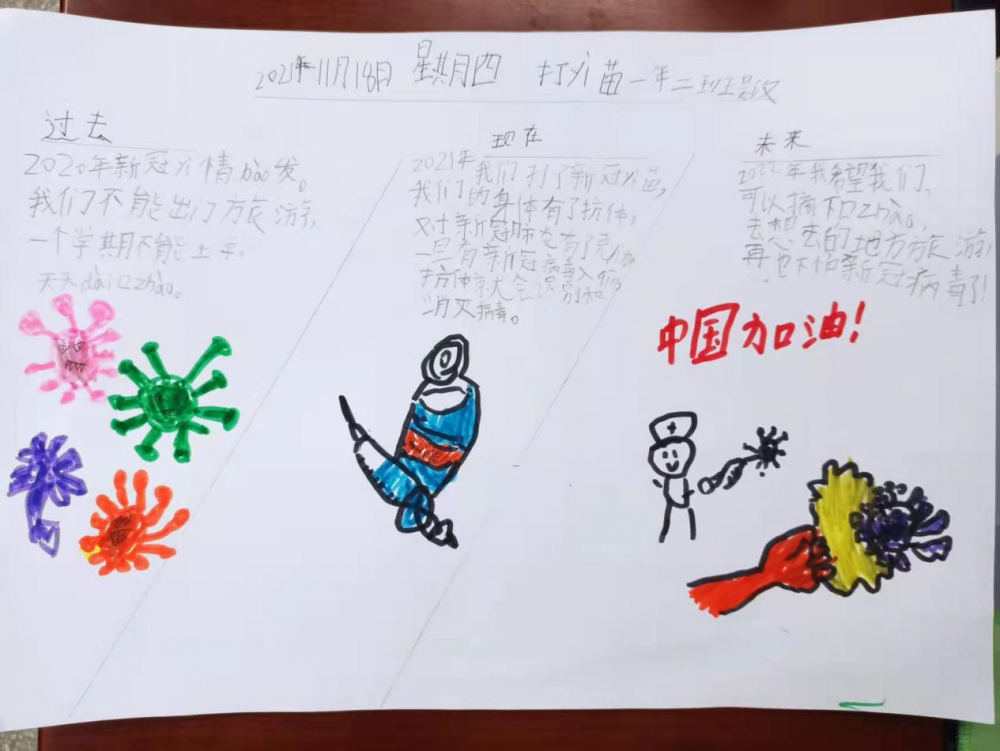 2021年11月18日 星期四 打 苗 一年二班
过去
2020年新冠 情 发。
我们不能出门旅游,
一个学期不能上 ,
天天dài口zhào。
现在
2021年我们打了新冠 苗,
我们的身体有了抗体,
对新冠肺 有了免 ,
一旦有新冠病毒入 ,
抗体 大会识别和
消灭病毒。
未来
2022年我希望我们,
可以摘下口zhào,
去想去的地方旅游,
再也不怕新冠病毒了!
中国加油!